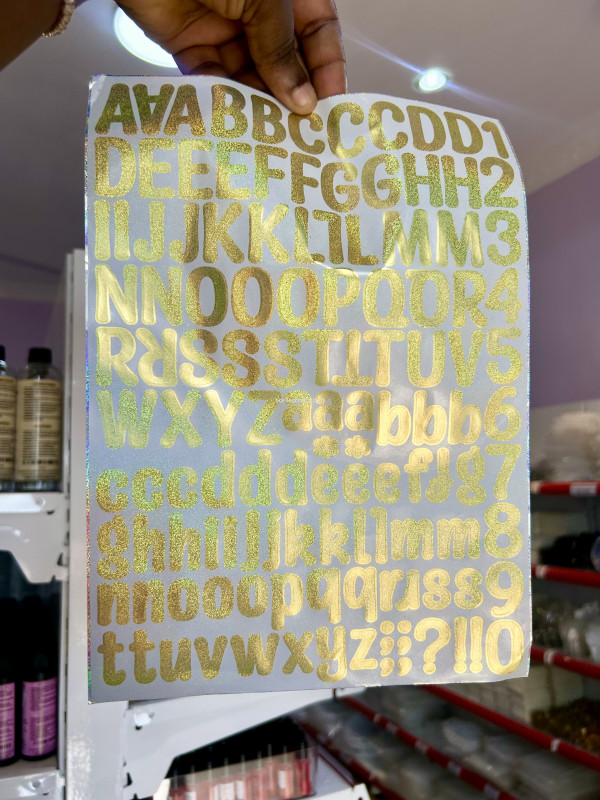 AAABBCCCDD1
DEEEFFGGHH2
IIJJJKKKLLLMMM3
NNOOOPQQR4
RRSSSSTTTTUV5
WXYZaaabbb6
cccdddeeeffg7
ghhiijjkkkllmm8
nnooopqqrrsss9
ttuvwxyz;;?!!0